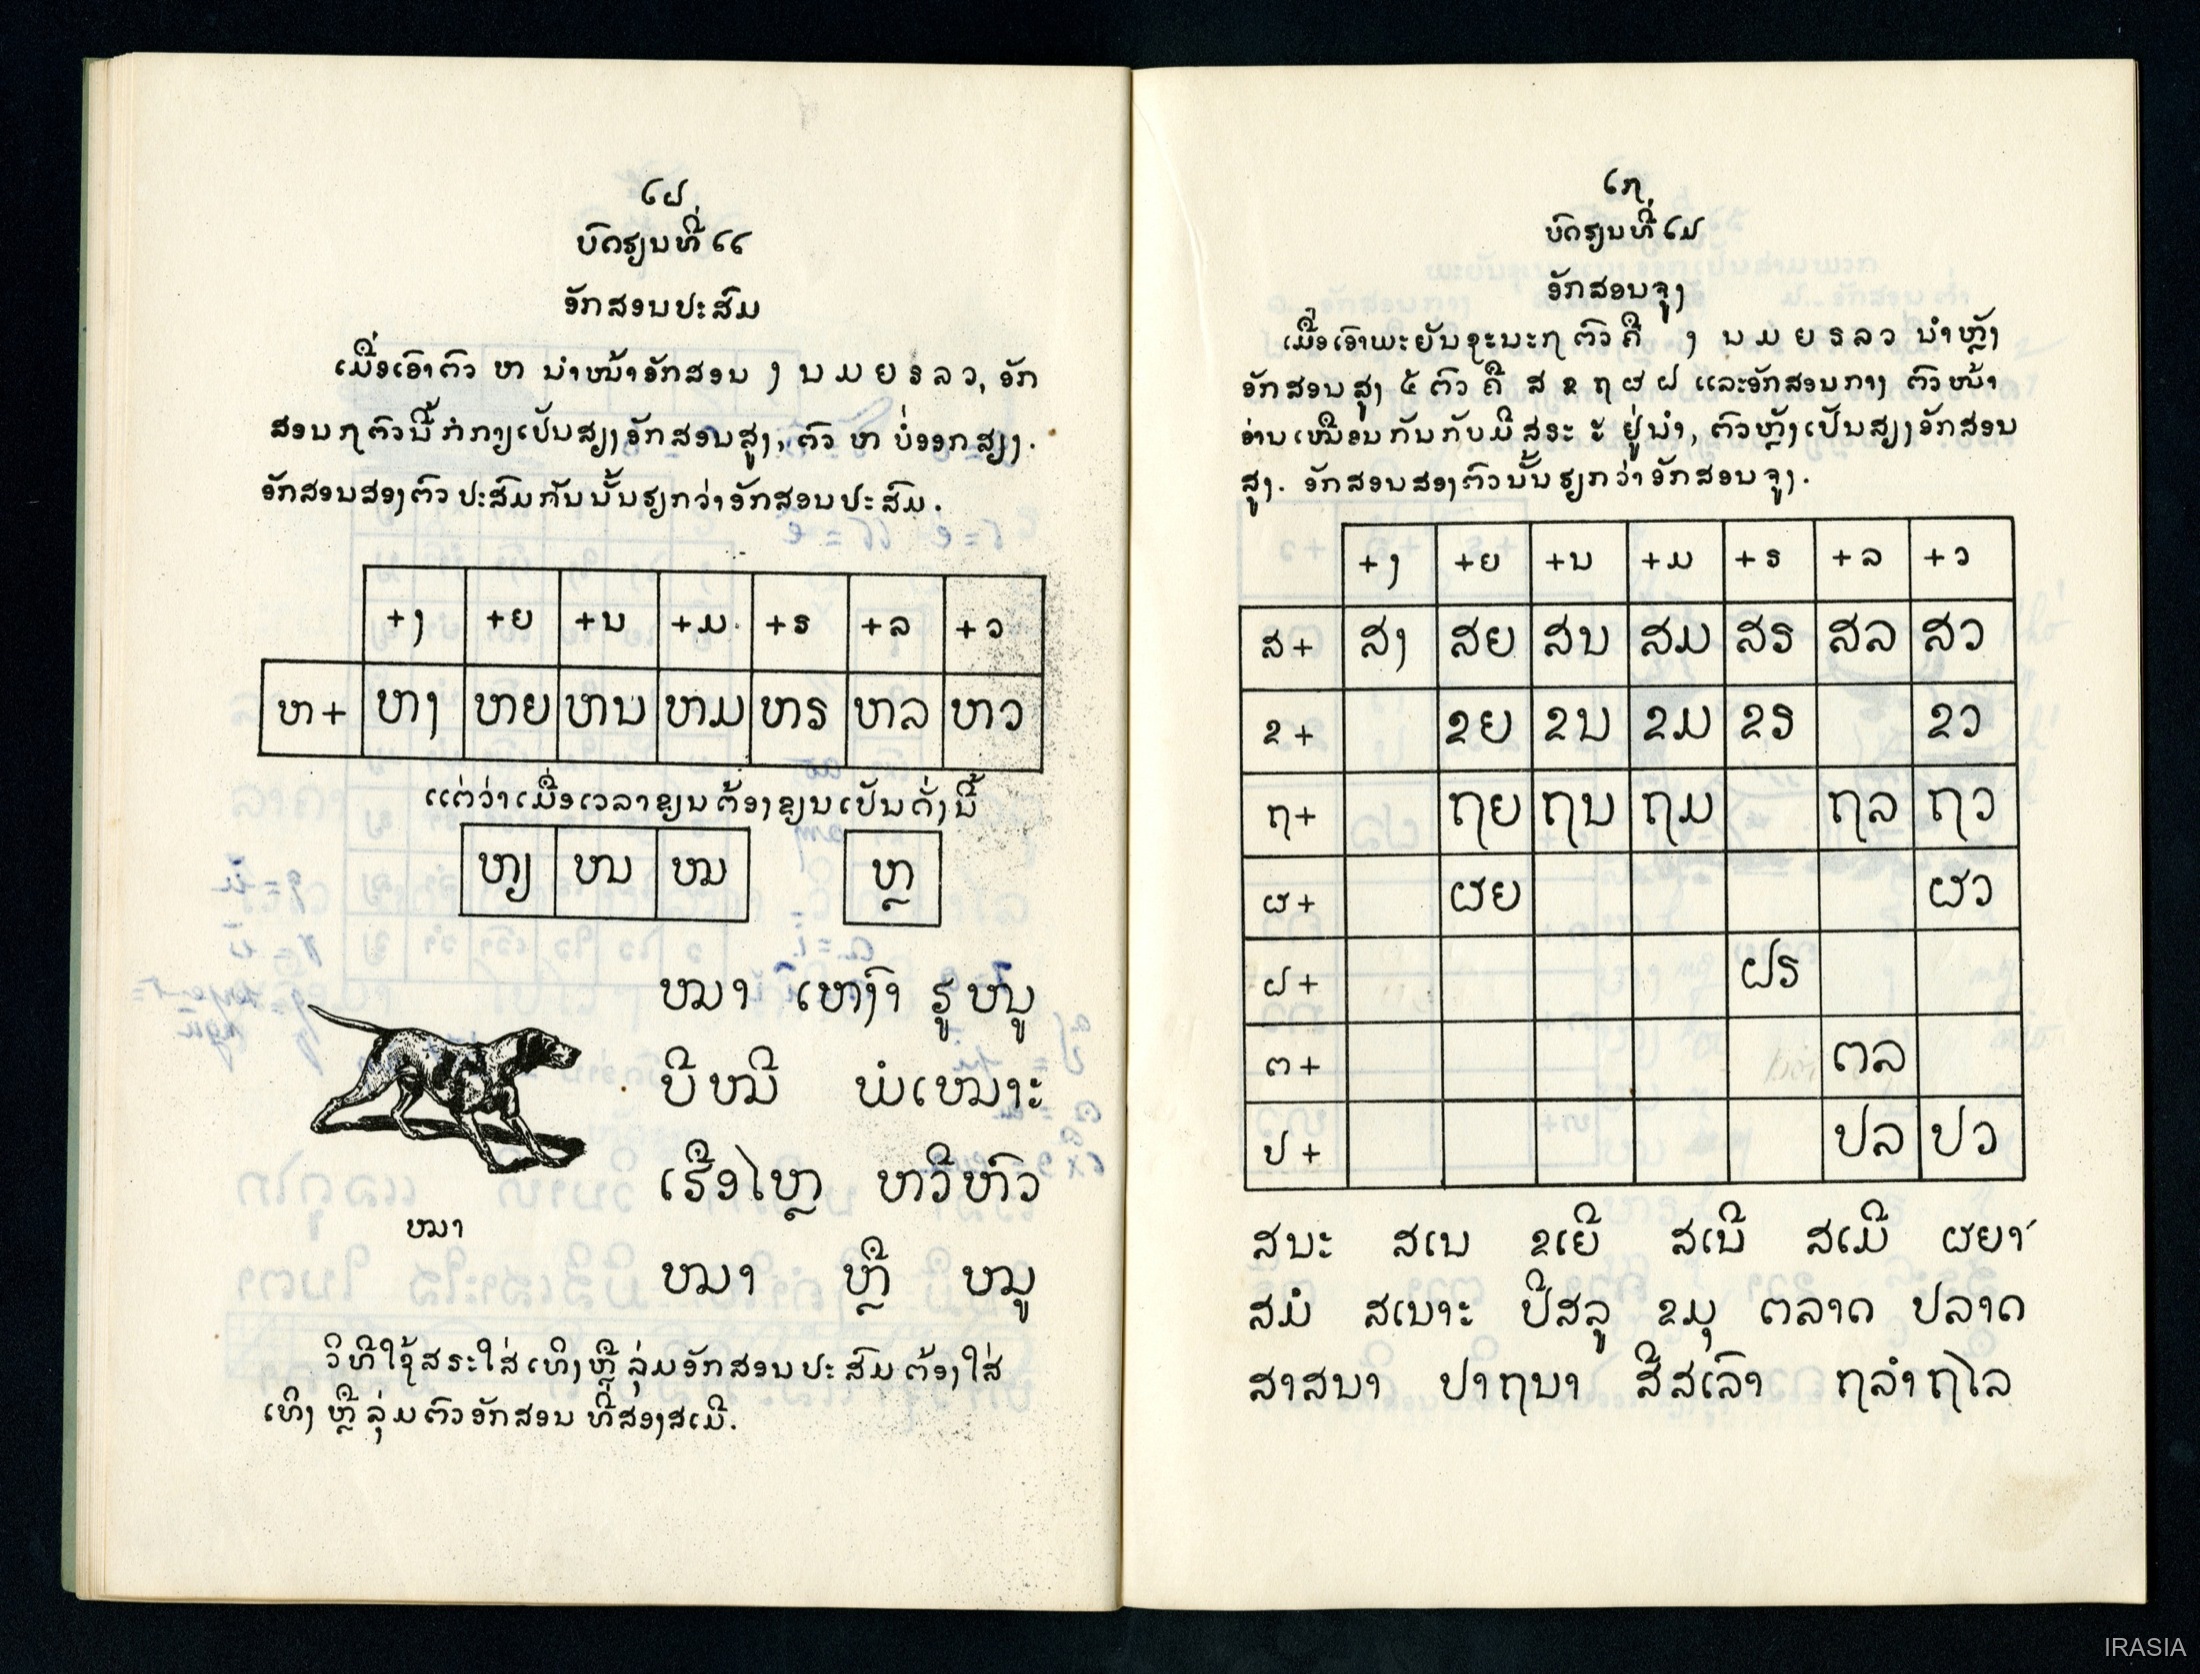 ໒ຝ
ບົດຮຽນທີ່ ໑໑
ອັກສອນປະສົມ
ເມື່ອເອົາຕົວ ຫ ນຳໜ້າອັກສອນ ງ ນ ມ ຍ ຣ ລ ວ, ອັກ
ສອນ ໗ ຕົວນີ້ ກໍກາຽເປັນສຽງອັກສອນສູງ, ຕົວ ຫ ບໍ່ອອກສຽງ.
ອັກສອນສອງຕົວປະສົມກັນນັ້ນຮຽກວ່າອັກສອນປະສົມ.
+ງ +ຍ +ນ +ມ +ຣ +ລ +ວ
ຫ+ ຫງ ຫຍ ຫນ ຫມ ຫຣ ຫລ ຫວ
ແຕ່ວ່າເມື່ອເວລາຂຽນຕ້ອງຂຽນເປັນດັ່ງນີ້
ຫຽ ໜ ໝ ຫຼ
ໝາ ເຫງົາ ຮູໜູ
ບີໝີ ພໍເໝາະ
ເຮືອໄຫຼ ຫວີຫົວ
ໝາ
ໝາ ຫຼື ໝູ
ວິທີໃຊ້ສຣະໃສ່ເທິງຫຼືລຸ່ມອັກສອນປະສົມຕ້ອງໃສ່
ເທິງ ຫຼືລຸ່ມຕົວອັກສອນ ທີ່ສອງສເມີ.
ບົດຮຽນທີ່ ໑໒
ອັກສອນຈູງ
ເມື່ອເອົາພະຍັນຊະນະ ໗ ຕົວ ຄື ງ ນ ມ ຍ ຣ ລ ວ ນຳຫຼັງ
ອັກສອນສູງ ໕ ຕົວ ຄື ສ ຂ ຖ ຜ ຝ ແລະອັກສອນກາງ ຕົວໜ້າ
ອ່ານເໝືອນກັນກັບມີສຣະ ະ ຢູ່ນຳ, ຕົວຫຼັງເປັນສຽງອັກສອນ
ສູງ. ອັກສອນສອງຕົວນັ້ນຮຽກວ່າອັກສອນຈູງ.
+ງ +ຍ +ນ +ມ +ຣ +ລ +ວ
ສ+ ສງ ສຍ ສນ ສມ ສຣ ສລ ສວ
ຂ+ ຂຍ ຂນ ຂມ ຂຣ ຂວ
ຖ+ ຖຍ ຖນ ຖມ ຖລ ຖວ
ຜ+ ຜຍ ຜວ
ຝ+ ຝຣ
ຕ+ ຕລ
ປ+ ປລ ປວ
ສນະ ສເນ ຂເຍີ ສເນີ ສເມີ ຜຍາ
ສມໍ ສເນາະ ປີສລູ ຂມຸ ຕລາດ ປລາດ
ສາສນາ ປາຖນາ ສີສເລົາ ຖລຳຖໄລ
IRASIA